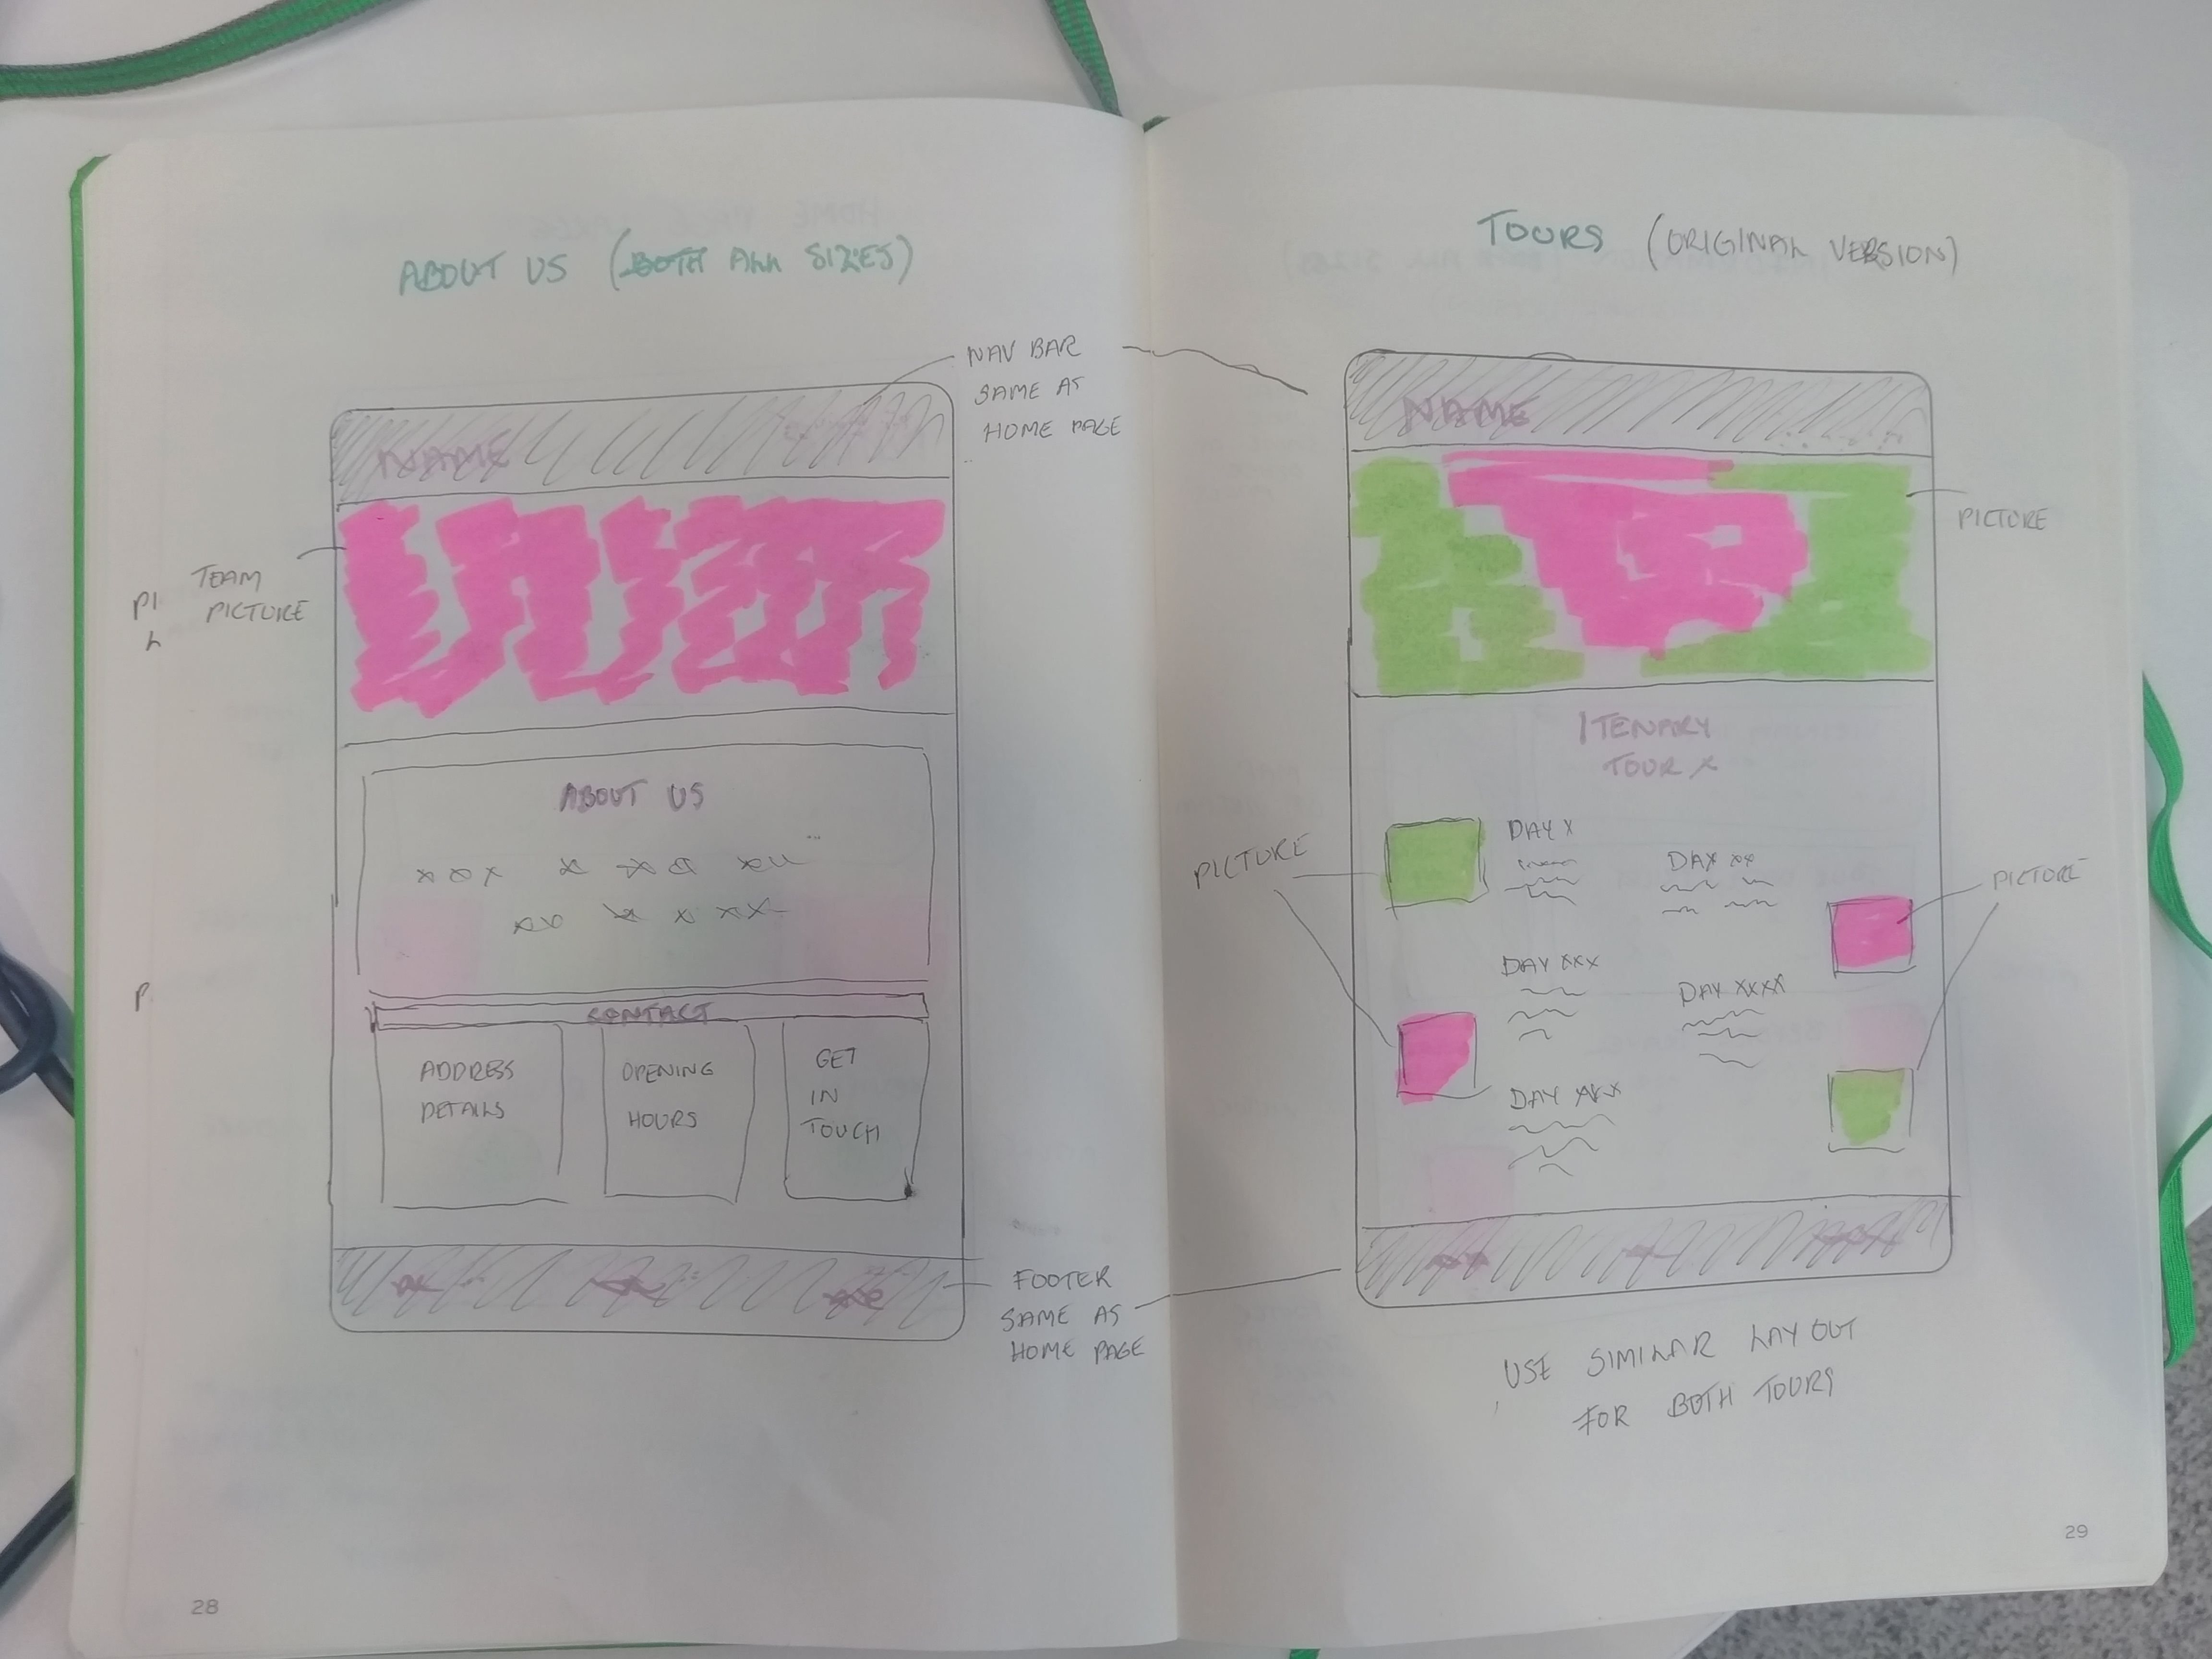 ABOUT US (BOTH ALL SIZES)
NAV BAR
SAME AS
HOME PAGE
NAME
TEAM
PICTURE
ABOUT US
CONTACT
ADDRESS
DETAILS
OPENING
HOURS
GET
IN
TOUCH
FOOTER
SAME AS
HOME PAGE
28
TOURS (ORIGINAL VERSION)
NAME
PICTURE
ITENARY
TOUR X
PICTURE
DAY X
DAY XX
PICTURE
DAY XXX
DAY XXXX
DAY XXX
USE SIMILAR LAYOUT
FOR BOTH TOURS
29